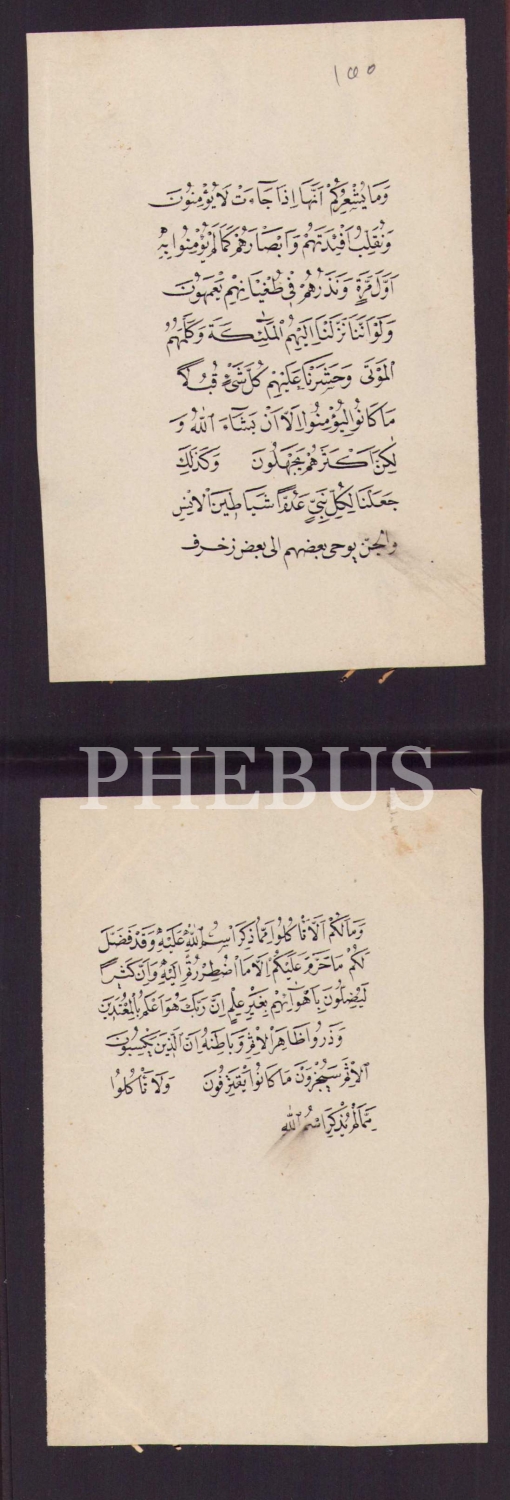 ١٥٥
وَمَا يُشْعِرُكُمْ اَنَّهَا اِذَا جَاءَتْ لَا يُؤْمِنُونَ
وَنُقَلِّبُ اَفْئِدَتَهُمْ وَاَبْصَارَهُمْ كَمَا لَمْ يُؤْمِنُوا بِهِ
اَوَّلَ مَرَّةٍ وَنَذَرُهُمْ فِى طُغْيَانِهِمْ يَعْمَهُونَ
وَلَوْ اَنَّنَا نَزَّلْنَا اِلَيْهِمُ الْمَلٰئِكَةَ وَكَلَّمَهُمُ
الْمَوْتٰى وَحَشَرْنَا عَلَيْهِمْ كُلَّ شَىْءٍ قُبُلًا
مَا كَانُوا لِيُؤْمِنُوا اِلَّا اَنْ يَشَاءَ اللّٰهُ وَ
لٰكِنَّ اَكْثَرَهُمْ يَجْهَلُونَ وَكَذٰلِكَ
جَعَلْنَا لِكُلِّ نَبِىٍّ عَدُوًّا شَيَاطِينَ الْاِنْسِ
والجنّ يوحى بعضهم الى بعض زخرف
PHEBUS
وَمَا لَكُمْ اَلَّا تَاْكُلُوا مِمَّا ذُكِرَ اسْمُ اللّٰهِ عَلَيْهِ وَقَدْ فَصَّلَ
لَكُمْ مَا حَرَّمَ عَلَيْكُمْ اِلَّا مَا اضْطُرِرْتُمْ اِلَيْهِ وَاِنَّ كَثِيرًا
لَيُضِلُّونَ بِاَهْوَائِهِمْ بِغَيْرِ عِلْمٍ اِنَّ رَبَّكَ هُوَ اَعْلَمُ بِالْمُعْتَدِينَ
وَذَرُوا ظَاهِرَ الْاِثْمِ وَبَاطِنَهُ اِنَّ الَّذِينَ يَكْسِبُونَ
الْاِثْمَ سَيُجْزَوْنَ مَا كَانُوا يَقْتَرِفُونَ وَلَا تَاْكُلُوا
مِمَّا لَمْ يُذْكَرِ اسْمُ اللّٰهِ